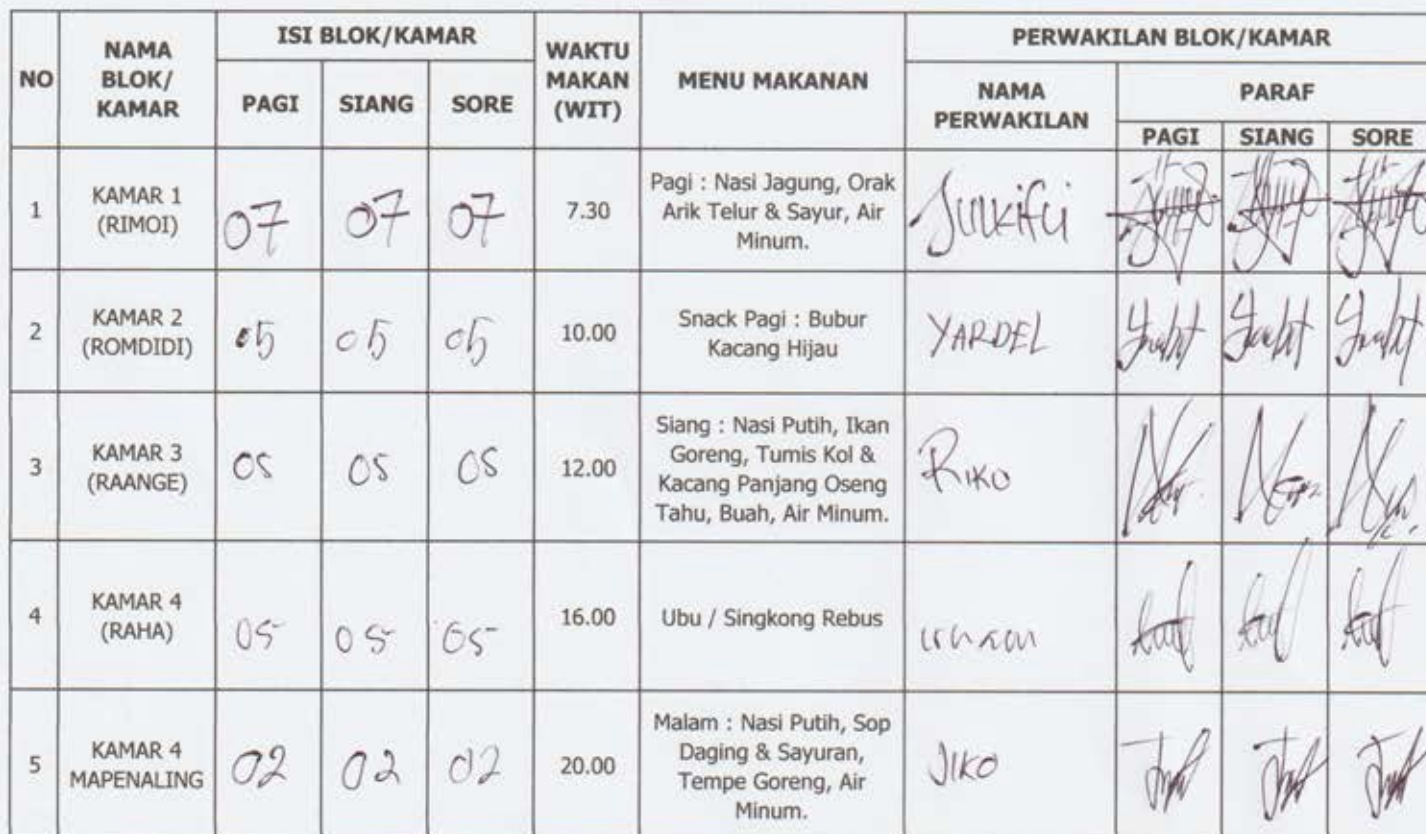 NO
NAMA BLOK/ KAMAR
ISI BLOK/KAMAR
PAGI
SIANG
SORE
WAKTU MAKAN (WIT)
MENU MAKANAN
PERWAKILAN BLOK/KAMAR
NAMA PERWAKILAN
PARAF
PAGI
SIANG
SORE
1
KAMAR 1
(RIMOI)
07
07
07
7.30
Pagi : Nasi Jagung, Orak
Arik Telur & Sayur, Air
Minum.
2
KAMAR 2
(ROMDIDI)
05
05
05
10.00
Snack Pagi : Bubur
Kacang Hijau
YARDEL
3
KAMAR 3
(RAANGE)
05
05
05
12.00
Siang : Nasi Putih, Ikan
Goreng, Tumis Kol &
Kacang Panjang Oseng
Tahu, Buah, Air Minum.
RIKO
4
KAMAR 4
(RAHA)
05
05
05
16.00
Ubu / Singkong Rebus
5
KAMAR 4
MAPENALING
02
02
02
20.00
Malam : Nasi Putih, Sop
Daging & Sayuran,
Tempe Goreng, Air
Minum.
JIKO